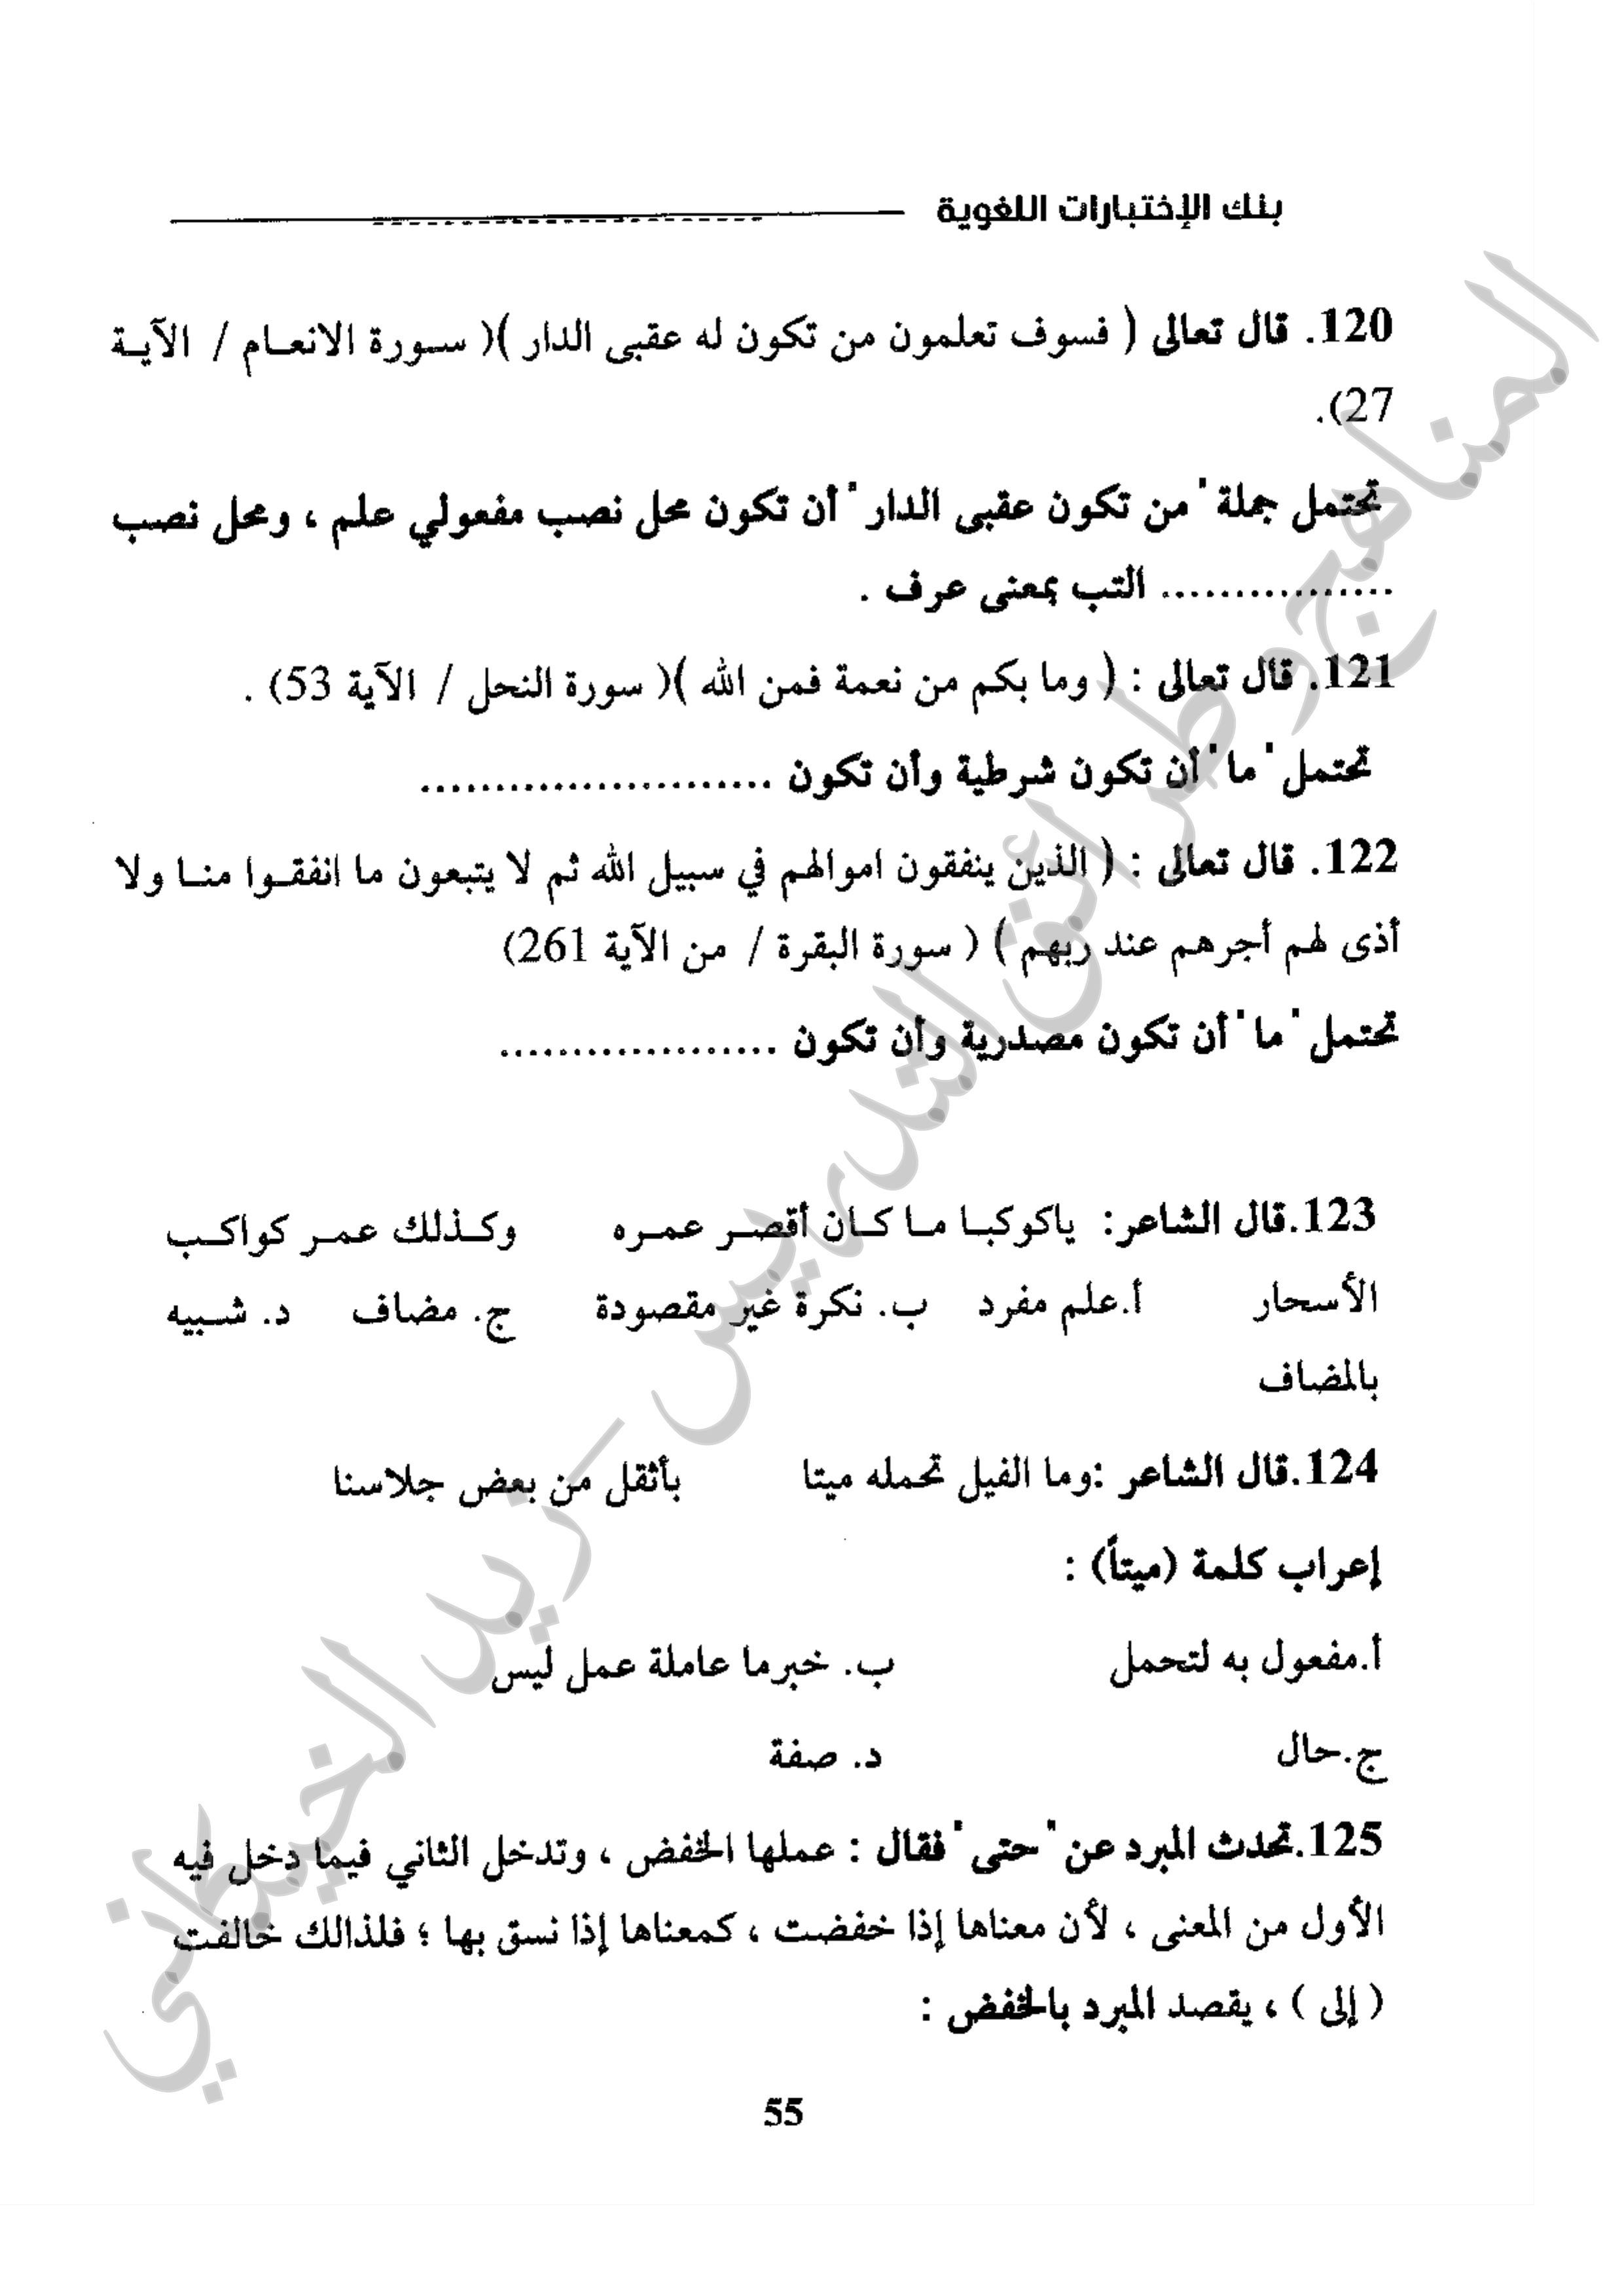 بنك الإختبارات اللغوية
120. قال تعالى ( فسوف تعلمون من تكون له عقبى الدار )( سورة الانعام / الآية
27).
تحتمل جملة " من تكون عقبى الدار " أن تكون محل نصب مفعولي علم ، ومحل نصب
................ التب بمعنى عرف .
121. قال تعالى : ( وما بكم من نعمة فمن الله )( سورة النحل / الآية 53) .
تحتمل " ما " أن تكون شرطية وأن تكون ........................
122. قال تعالى : ( الذين ينفقون اموالهم في سبيل الله ثم لا يتبعون ما انفقوا منا ولا
أذى لهم أجرهم عند ربهم ) ( سورة البقرة / من الآية 261)
تحتمل " ما " أن تكون مصدرية وأن تكون ...................
123.قال الشاعر: ياكوكبا ما كان أقصر عمره وكذلك عمر كواكب
الأسحار أ.علم مفرد ب. نكرة غير مقصودة ج. مضاف د. شبيه
بالمضاف
124.قال الشاعر :وما الفيل تحمله ميتا بأثقل من بعض جلاسنا
إعراب كلمة (ميتاً) :
أ.مفعول به لتحمل ب. خبرما عاملة عمل ليس
ج.حال د. صفة
125.تحدث المبرد عن " حتى " فقال : عملها الخفض ، وتدخل الثاني فيما دخل فيه
الأول من المعنى ، لأن معناها إذا خفضت ، كمعناها إذا نسق بها ؛ فلذالك خالفت
( إلى ) ، يقصد المبرد بالخفض :
55
المناهج وطرائق التدريس – زيد الخيكاني